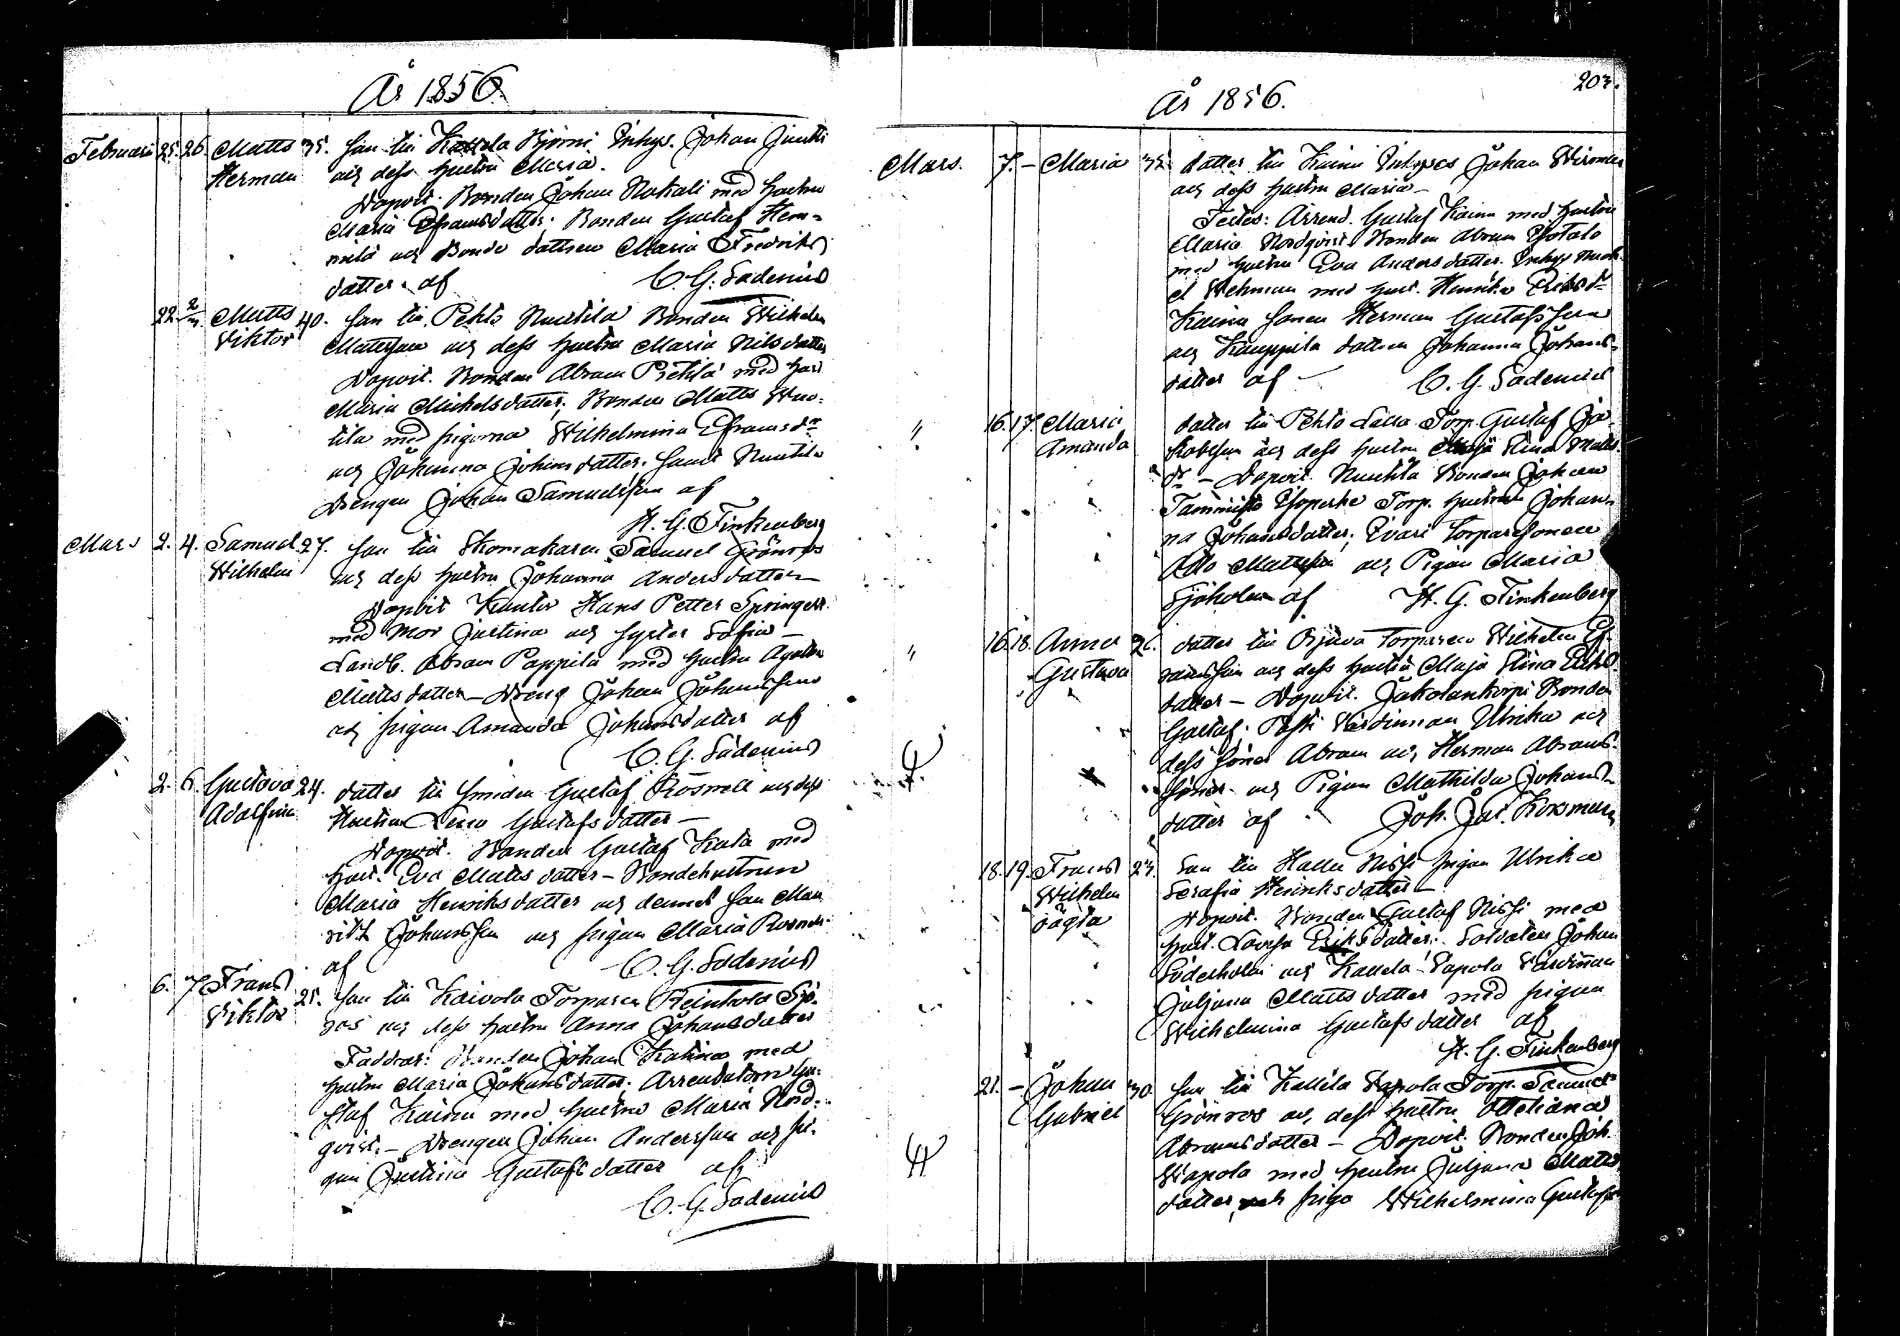 År 1856.
Februari 25. 26. Matts 35. Son till Kallela Björni Inhys. Johan Juntti
Herman och dess hustru Maria.
Dopvit. Bonden Johan Nohali med hustru
Maria Efraimsdotter; Bonden Gustaf Hem=
milä och Bonde dottren Maria Fredriks
dotter. af C. G. Sadenius
22. 2/3 Matts 40. Son till Pehto Nuutila Bonden Wilhelm
Viktor Mattsson och dess hustru Maria Nilsdotter
Dopvit. Bonden Abram Prehlä med hust
Maria Michelsdotter; Bonden Matts
tila med pigorna Wilhelmina Efraimsdr
och Johanna Johansdotter. samt Nuutila
Drengen Johan Samuelsson af
H. G. Finkenberg
Mars 2. 4. Samuel 27. Son till Skomakaren Samuel Grönroos
Wilhelm och dess hustru Johanna Andersdotter
Dopvit Kantor Hans Petter Springert
med Mor Justina och syster Sofia —
Landb. Abram Pappila med hustru Agatha
Mattsdotter — Dreng Johan Johansson
och pigan Amanda Johansdotter af
C. G. Sadenius
2. 6. Gustava 24. dotter till Smeden Gustaf Rosnell och dess
Adolfina Hustru Lena Gustafsdotter —
Dopvit. Bonden Gustaf Knta med
hust. Eva Mattsdotter — Bondehustrun
Maria Henriksdotter och dennes son Mau
ritz Johansson och pigan Maria Rosnell
af C. G. Sadenius
6. 7. Frans 25. Son till Kaivola Torparen Reinhold Sjö=
Viktor ros och dess hustru Anna Johansdotter
Faddrar: Bonden Johan Katina med
hustru Maria Johansdotter. Arrendatorn Gu=
staf Kainu med hustru Maria Nord=
qvist. — Drengen Johan Andersson och pi=
gan Justina Gustafsdotter af
C. G. Sadenius
År 1856. 203.
Mars. 7. — Maria 32. dotter till Kainu Inhyses Johan Wirman
och dess hustru Maria —
Testes: Arrend. Gustaf Kainu med hustru
Maria Nordqvist Bonden Abram
med hustru Eva Andersdotter. Inhys Mich
el Wehman med hust. Henrika Eriksdr
Kainu sonen Herman Gustafsson
och Kauppila dottren Johanna Johans=
dotter af — C. G. Sadenius
" 16. 17. Maria dotter till Pehto Torp. Gustaf Ja=
Amanda kobsson och dess hustru Maja Stina Matts
dr — Dopvit. Nuutila Bonden Johan
Tammisto Torp. hustrun Johan=
na Johansdotter; Evari Torparesonen
Otto Mattsson och Pigan Maria
Sjöholm af H. G. Finkenberg
" 16. 18. Anna 26. dotter till Torparen Wilhelm Ef=
Gustava raimsson och dess hustru Maja Stina Eriks
dotter — Dopvit. Jakolankorpi Bonden
Gustaf; Värdinnan Ulrika och
dess söner Abram och Herman Abrams=
söner och Pigan Mathilda Johans
dotter af Joh. Jac. Kossman
18. 19. Frans 23. Son till Halla Nissi pigan Ulrika
Wilhelm Serafia Henriksdotter —
oägta Dopvit. Bonden Gustaf Nissi med
hust. Lovisa Eriksdotter. Soldaten Johan
Söderholm och Kallela Vapola Värdinnan
Juljana Mattsdotter med pigan
Wilhelmina Gustafsdotter af
H. G. Finkenberg
21. — Johan 30. Son till Kallela Vapola Torp. Samuel
Gabriel Grönros och dess hustru Ottiliana
Abramsdotter — Dopvit. Bonden Joh.
Wapola med hustru Juljana Matts
dotter, och piga Wilhelmina Gustafs